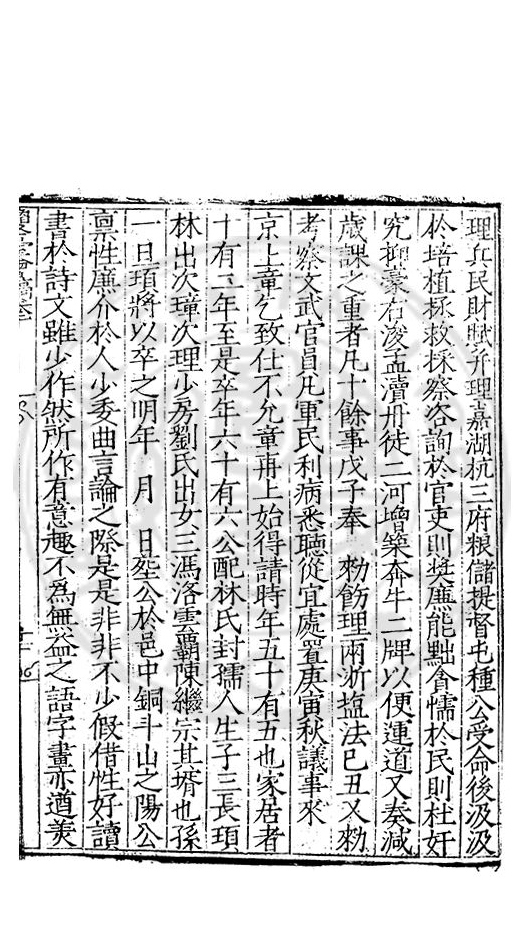 理兵民財賦弁理嘉湖杭三府粮儲提督屯種公受命後汲汲
於培植拯救採察咨詢於官吏則奬廉能黜貪懦於民則杜奸
究抑豪右浚孟瀆丹徒二河增築奔牛二牌以便運道又奏減
歲課之重者凡十餘事戊子奉　勑飭理兩浙塩法己丑又勑
考察文武官員凡軍民利病悉聽從宜處置庚寅秋議事來
京上章乞致仕不允章再上始得請時年五十有五也家居者
十有二年至是卒年六十有六公配林氏封孺人生子三長頊
林出次璋次理少房劉氏出女三馮洛雲霸陳繼宗其壻也孫
一日頊將以卒之明年　月　日塟公於邑中銅斗山之陽公
禀性廉介於人少委曲言論之際是是非非不少假借性好讀
書於詩文雖少作然所作有意趣不爲無益之語字畫亦遒美